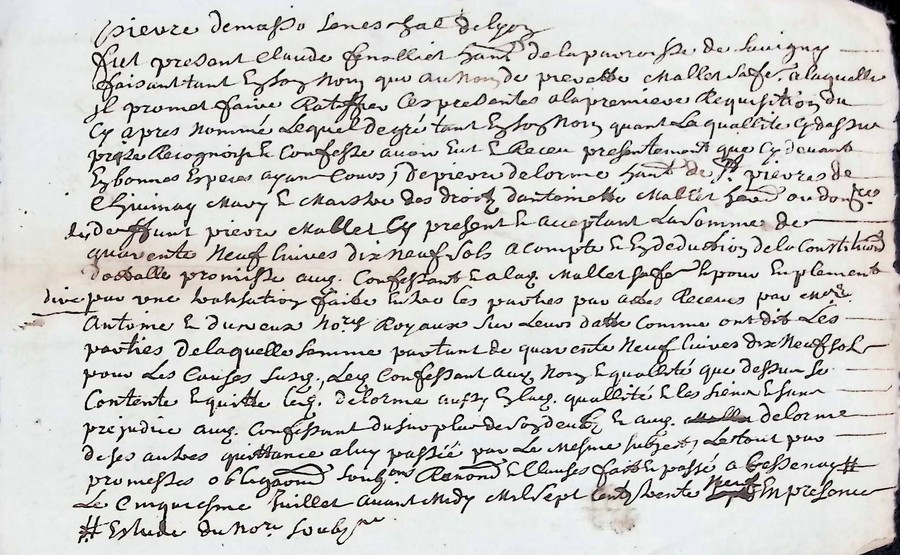 pierre demasso seneschal de lyon
fut present Claude fenalliet hant de la parroisse de savigny
faisant tant en son nom que au nom de pierrette mallet sa fe. a laquelle
il promet faire Ratiffier ces presentes a la premiere Requisition du
cy apres nommé Lequel de gré tant en son nom quant La quallité cy dessus
prize Recognoist et Confesse avoir Eut et Receu presentement que cy devant
En bonnes Especes ayant Cours; de pierre delorme hant de St. pierre de
Chivinay Mary et Maistre des droictz dantoinette Mallet
de deffunt pierre Mallet Cy present et acceptant La Somme de
quarente Neuf Livres dix Neuf Sols a compte et En deduction de la Constitution
dotalle promisse aud. Confessant et a lad. Mallet sa fe et pour Emplement
dicé par une transaction faite Entre les parties par actes Receus par Me
Antoine et Nores Royaux Sur Leurs datte Comme ont dit Les
parties de laquelle Somme partant de quarente Neuf Livres dix Neuf Sols
pour Les Causes Susd., Led. Confessant aux Nom et quallité que dessus Se
Contente et quitte led. delorme aussy En lad. quallité et les Siens et Sans
prejudice aud. Confessant du surplus de son deub, et aud. delorme
de ses autres quittance a luy passée par Le Mesme Subject, Le tout par
promesses obligaons Soubmons Renonons et Clauses fait et passé a Bessenay #
Le Cinquiesme Juillet avant Midy Mil Sept Cent trente Neuf En presence
# Estude du Nore Soubzne